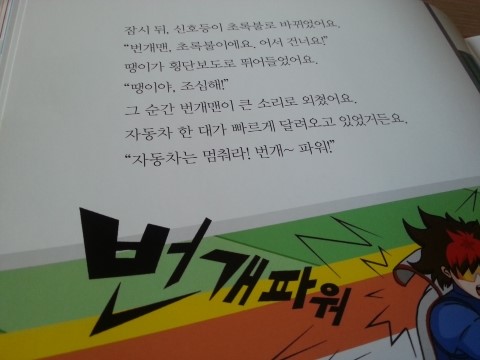 잠시 뒤, 신호등이 초록불로 바뀌었어요.
“번개맨, 초록불이에요. 어서 건너요!”
땡이가 횡단보도로 뛰어들었어요.
“땡이야, 조심해!”
그 순간 번개맨이 큰 소리로 외쳤어요.
자동차 한 대가 빠르게 달려오고 있었거든요.
“자동차는 멈춰라! 번개~ 파워!”
번개파워